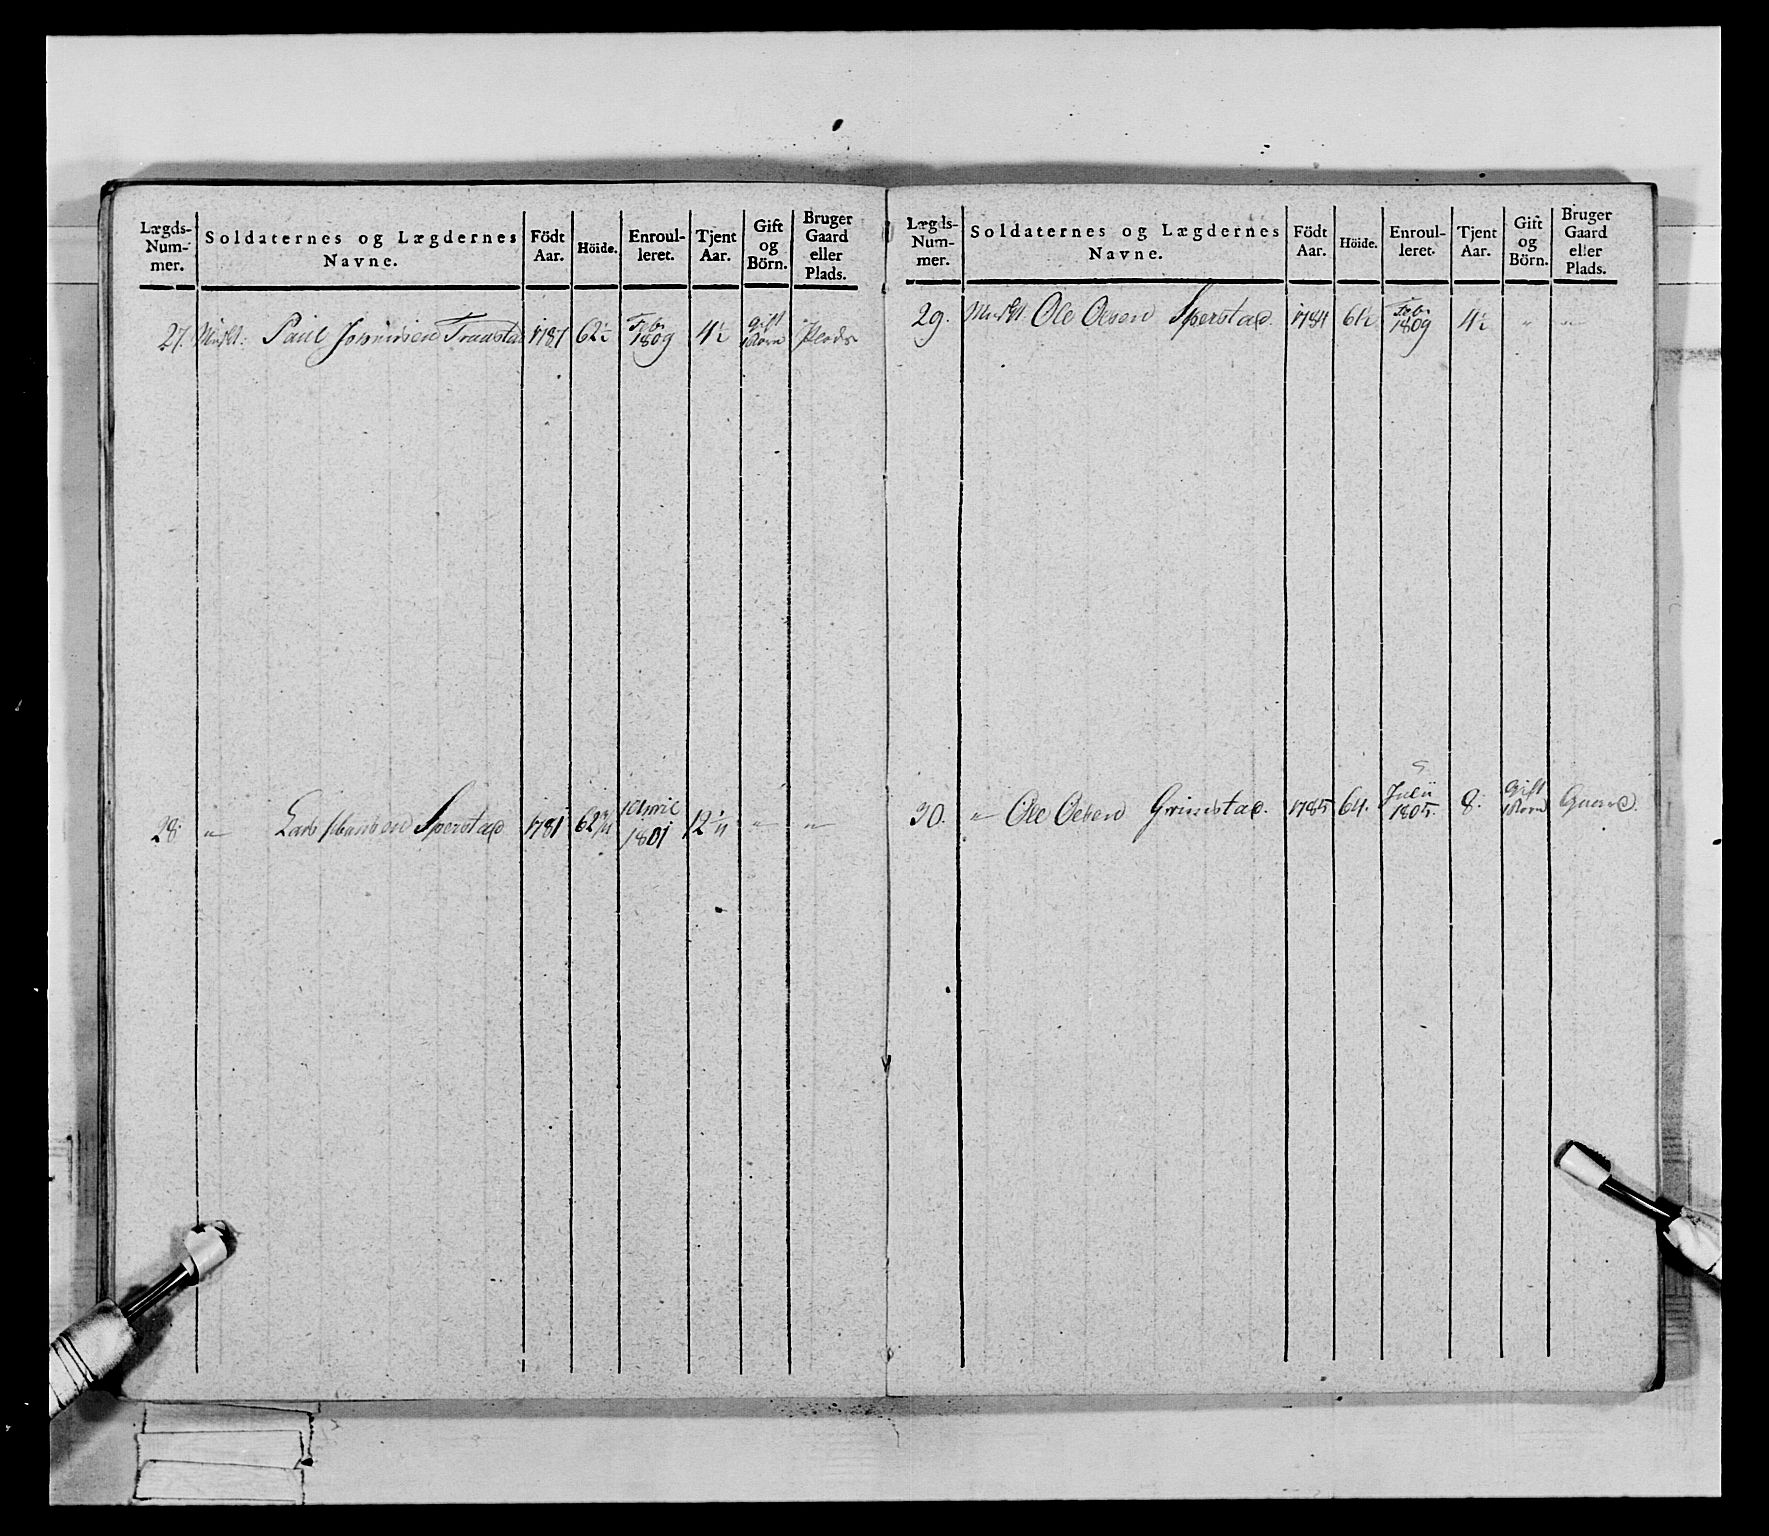 Lægds-Num-mer. Soldaternes og Lægdernes Navne. Födt Aar. Höide. Enroul-leret. Tjent Aar. Gift og Börn. Bruger Gaard eller Plads.
27. Muskt: Paul Johnnisen Traastad 1787 62½ Febr 1809 4½ gift 1 Börn Plads
28. " Lars Hansen Sperstad 1781 62¾ April 1801 12¼ " "
Lægds-Num-mer. Soldaternes og Lægdernes Navne. Födt Aar. Höide. Enroul-leret. Tjent Aar. Gift og Börn. Bruger Gaard eller Plads.
29. Muskt. Ole Olsen Sperstad. 1784 61½ Febr 1809 4½ " "
30. " Ole Olsen Grimstad. 1785 64. Julii 1805. 8. Gift 1 Börn Gaard.